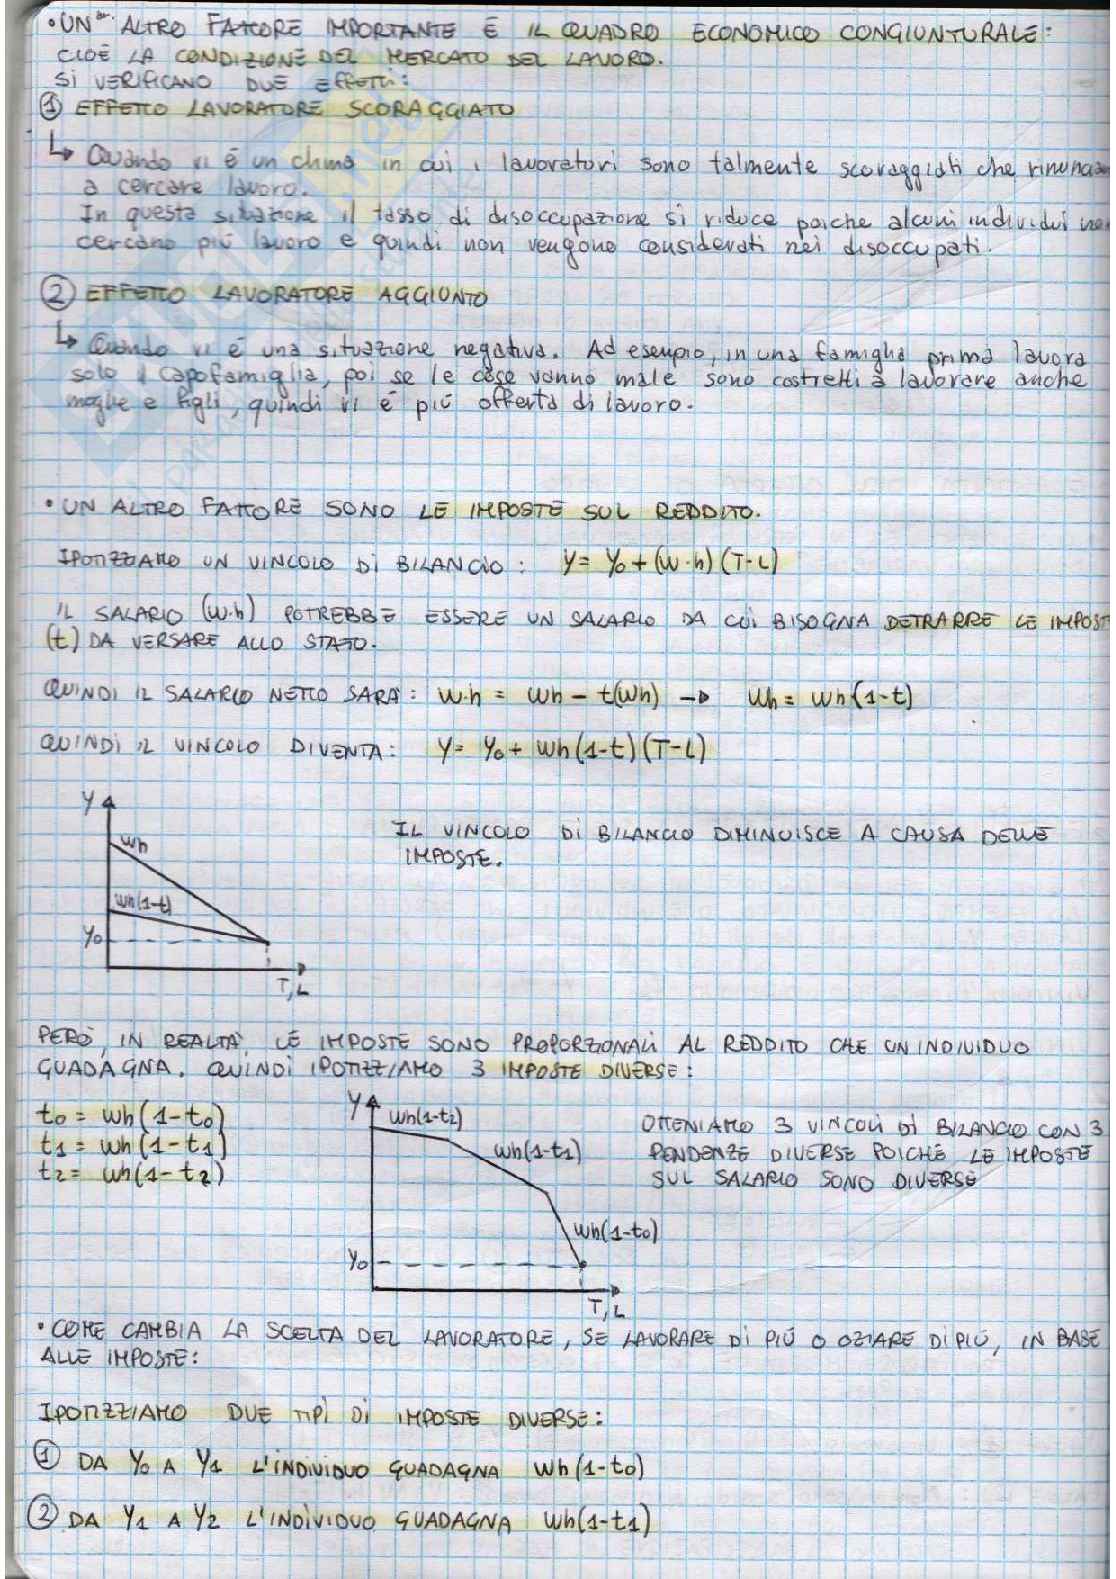 • UN ALTRO FATTORE IMPORTANTE È IL QUADRO ECONOMICO CONGIUNTURALE:
CIOÈ LA CONDIZIONE DEL MERCATO DEL LAVORO.
SI VERIFICANO DUE EFFETTI:
① EFFETTO LAVORATORE SCORAGGIATO
↳ Quando vi è un clima in cui i lavoratori sono talmente scoraggiati che
a cercare lavoro.
In questa situazione il tasso di disoccupazione si riduce poiche alcuni individui
cercano più lavoro e quindi non vengono considerati nei disoccupati.
② EFFETTO LAVORATORE AGGIUNTO
↳ Quando vi è una situazione negativa. Ad esempio, in una famiglia prima lavora
solo il capofamiglia, poi se le cose vanno male sono costretti a lavorare anche
moglie e figli, quindi vi è più offerta di lavoro.
• UN ALTRO FATTORE SONO LE IMPOSTE SUL REDDITO.
IPOTIZZIAMO UN VINCOLO DI BILANCIO: Y = Y0 + (W·h) (T-L)
IL SALARIO (W·h) POTREBBE ESSERE UN SALARIO DA CUI BISOGNA DETRARRE LE IMPOST
(t) DA VERSARE ALLO STATO.
QUINDI IL SALARIO NETTO SARÀ: W·h = Wh - t(Wh) → Wh = Wh(1-t)
QUINDI IL VINCOLO DIVENTA: Y = Y0 + Wh(1-t)(T-L)
Y
Wh
IL VINCOLO DI BILANCIO DIMINUISCE A CAUSA DELLE
IMPOSTE.
Wh(1-t)
Y0
T, L
PERÒ, IN REALTÀ, LE IMPOSTE SONO PROPORZIONALI AL REDDITO CHE UN INDIVIDUO
GUADAGNA. QUINDI IPOTIZZIAMO 3 IMPOSTE DIVERSE:
t0 = Wh(1-t0)
t1 = Wh(1-t1)
t2 = Wh(1-t2)
Y
Wh(1-t2)
Wh(1-t1)
Wh(1-t0)
Y0
T, L
OTTENIAMO 3 VINCOLI DI BILANCIO CON 3
PENDENZE DIVERSE POICHÈ LE IMPOSTE
SUL SALARIO SONO DIVERSE
• COME CAMBIA LA SCELTA DEL LAVORATORE, SE LAVORARE DI PIÙ O OZIARE DI PIÙ, IN BASE
ALLE IMPOSTE:
IPOTIZZIAMO DUE TIPI DI IMPOSTE DIVERSE:
① DA Y0 A Y1 L'INDIVIDUO GUADAGNA Wh(1-t0)
② DA Y1 A Y2 L'INDIVIDUO GUADAGNA Wh(1-t1)